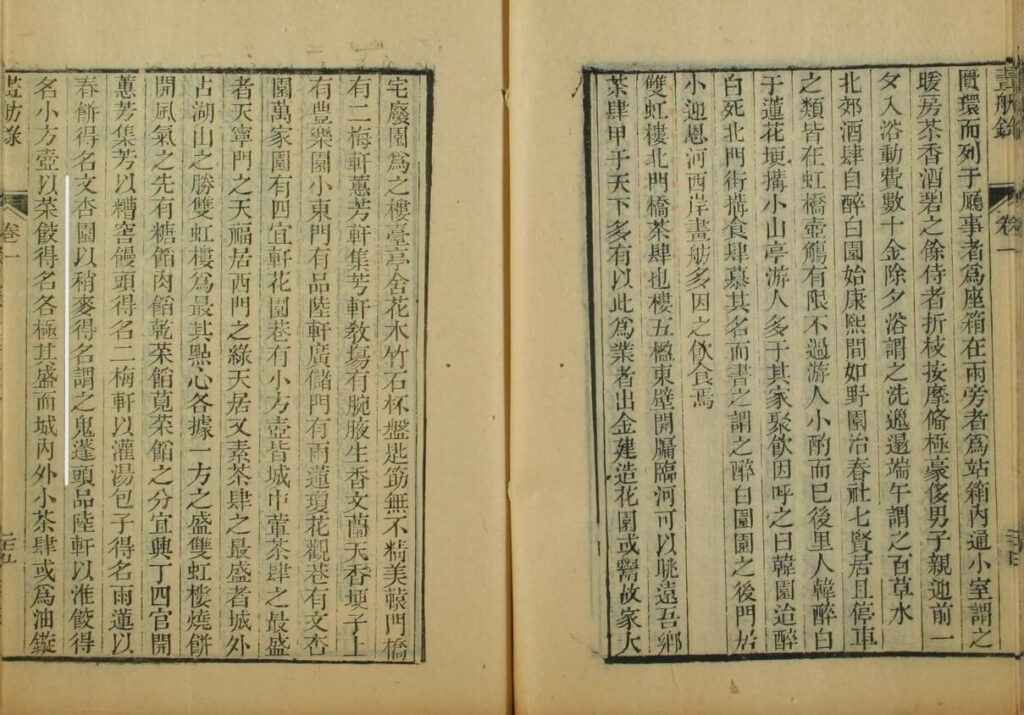 畫舫錄 卷一
匱環而列于廳事者為座箱在兩旁者為站箱內通小室謂之
暖房茶香酒碧之餘侍者折枝按摩俻極豪侈男子親迎前一
夕入浴動費數十金除夕浴謂之洗邋遢端午謂之百草水
北郊酒肆自醉白園始康熙間如野園冶春社七賢居且停車
之類皆在虹橋壺觴有限不過游人小酌而已後里人韓醉白
于蓮花埂搆小山亭游人多于其家聚飲因呼之曰韓園迨醉
白死北門街搆食肆慕其名而書之謂之醉白園園之後門居
小迎恩河西岸畫舫多因之飲食焉
雙虹樓北門橋茶肆也樓五楹東壁開牖臨河可以眺遠吾鄉
茶肆甲于天下多有以此為業者出金建造花園或鬻故家大
宅廢園為之樓臺亭舍花木竹石杯盤匙筯無不精美轅門橋
有二梅軒蕙芳軒集芳軒教場有腕腋生香文蘭天香埂子上
有豐樂園小東門有品陸軒廣儲門有雨蓮瓊花觀巷有文杏
園萬家園有四宜軒花園巷有小方壺皆城中葷茶肆之最盛
者天寧門之天福居西門之綠天居又素茶肆之最盛者城外
占湖山之勝雙虹樓為最其點心各據一方之盛雙虹樓燒餅
開風氣之先有糖餡肉餡乾菜餡莧菜餡之分宜興丁四官開
蕙芳集芳以糟窖饅頭得名二梅軒以灌湯包子得名雨蓮以
春餅得名文杏園以稍麥得名謂之鬼蓬頭品陸軒以淮餃得
名小方壺以菜餃得名各極其盛而城內外小茶肆或為油鏇
畫舫錄 卷一